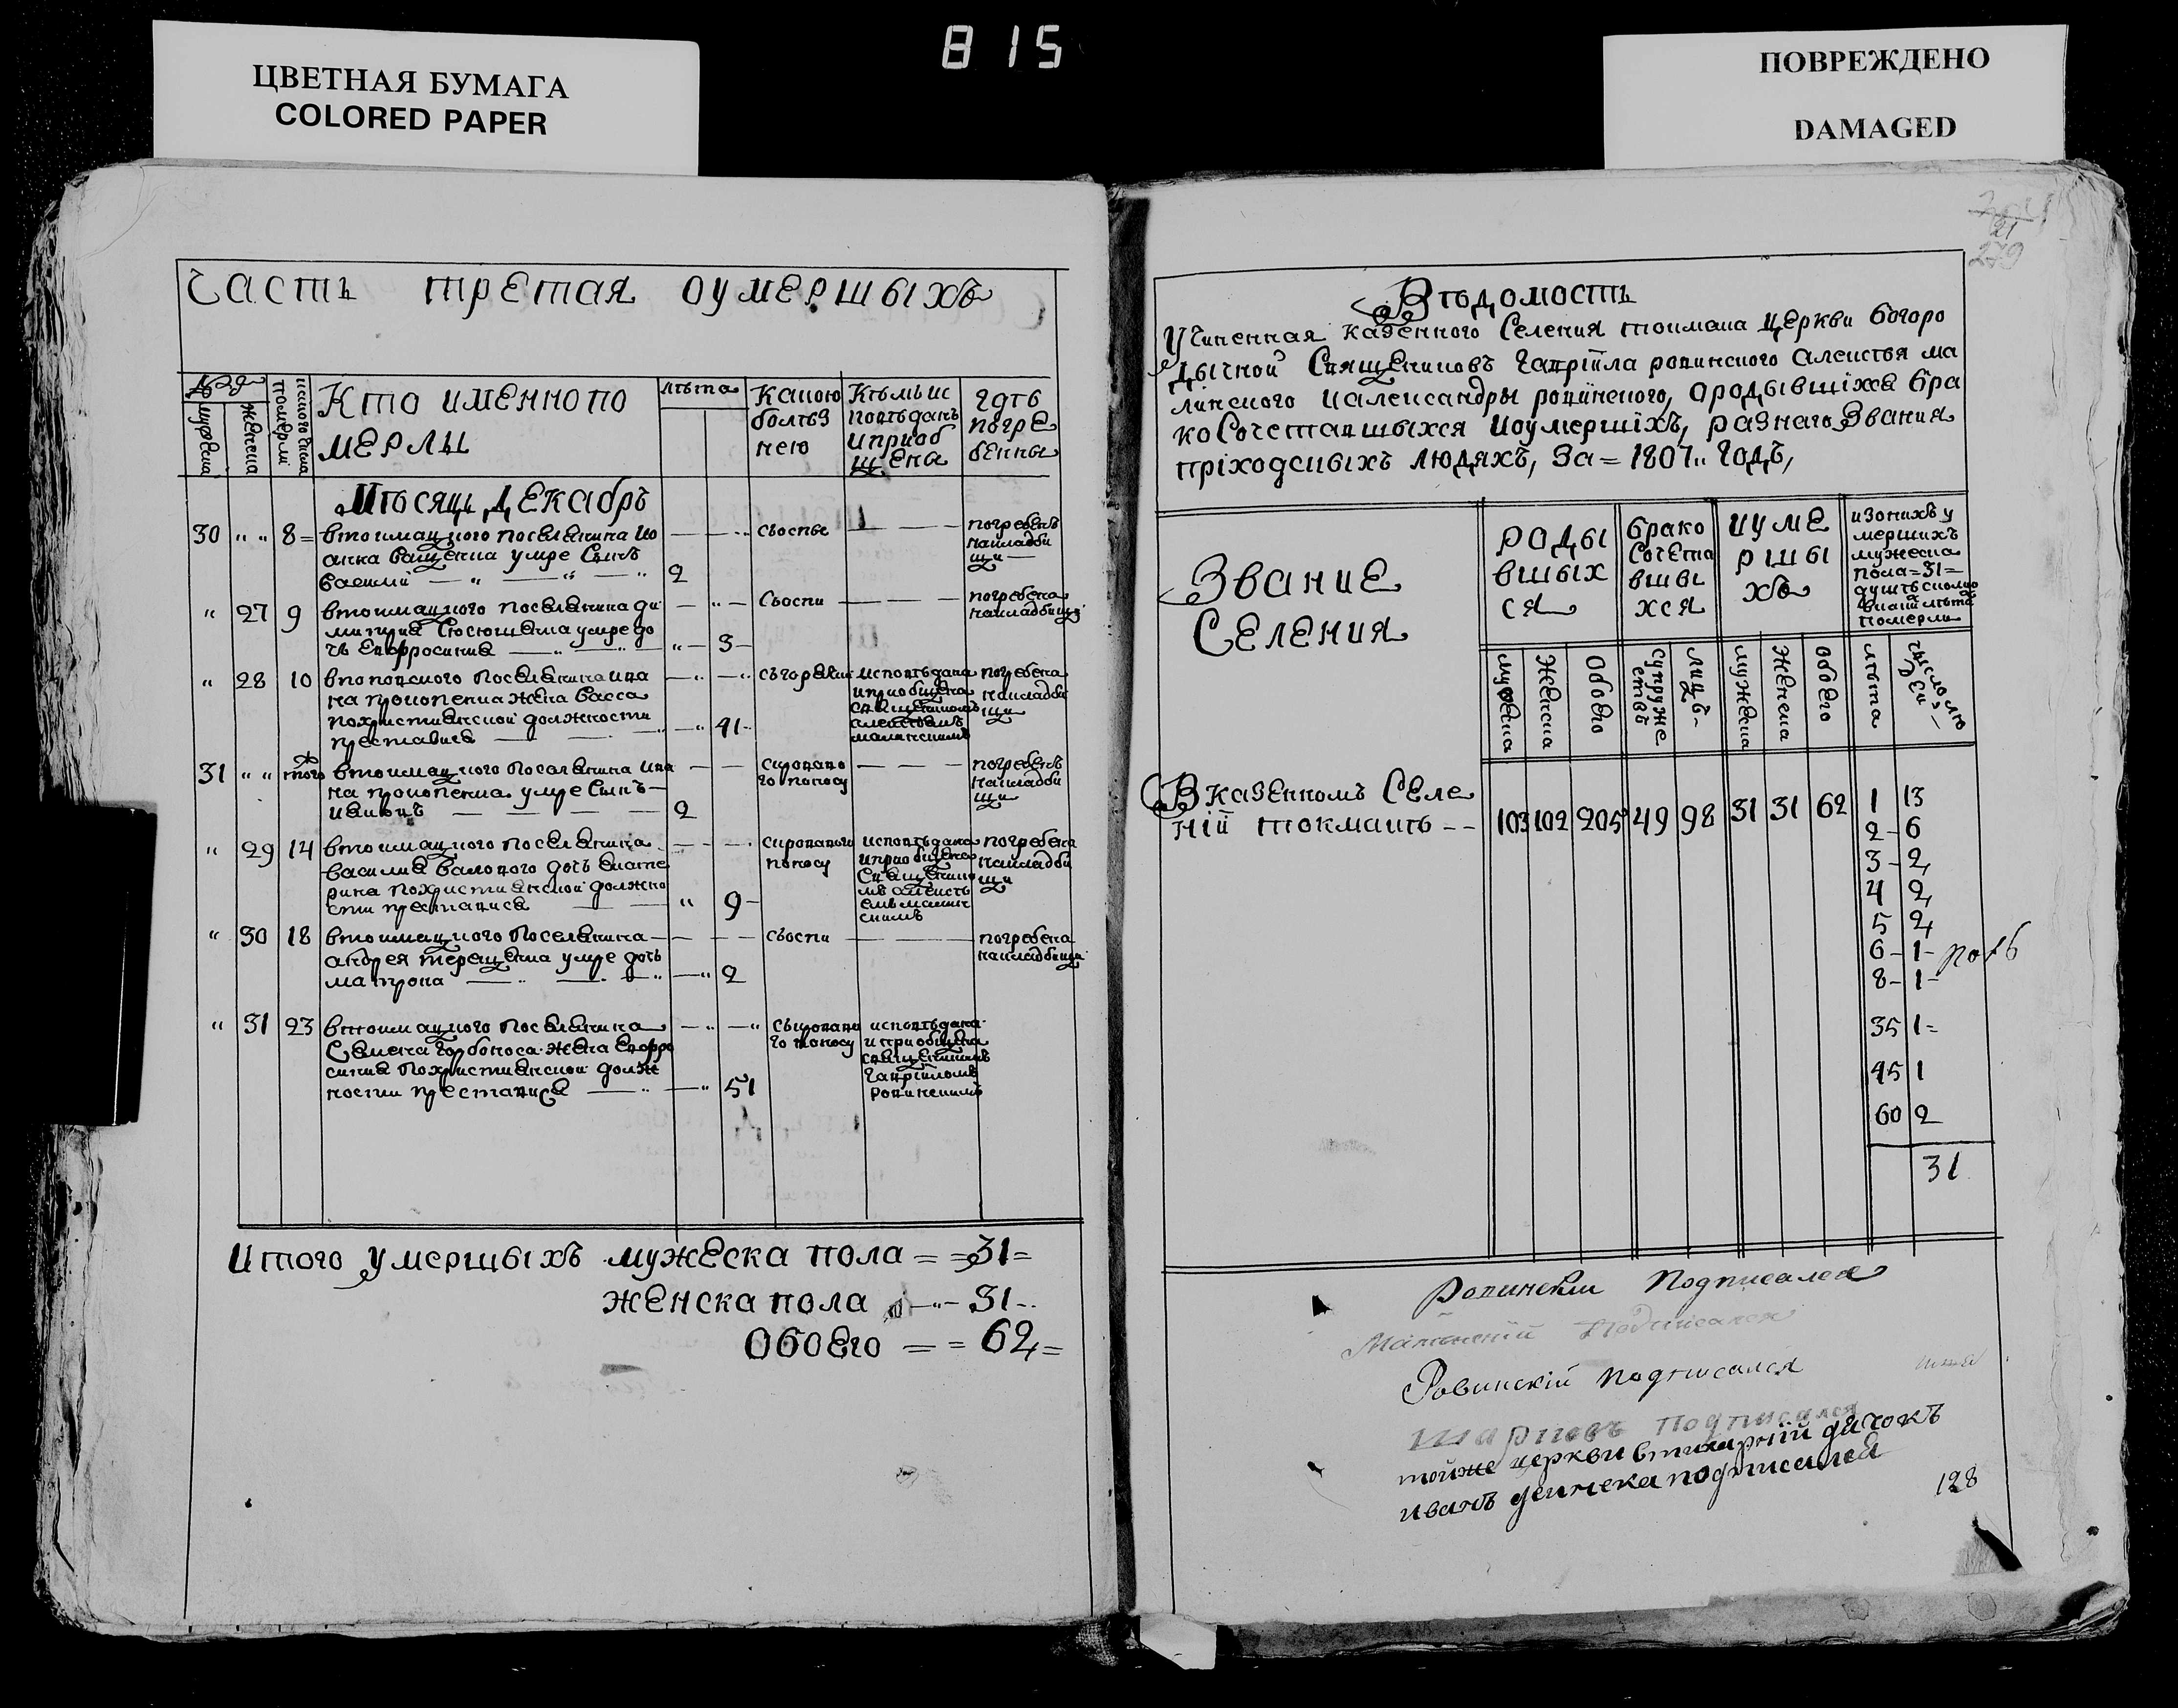 815
ЦВЕТНАЯ БУМАГА
COLORED PAPER
ПОВРЕЖДЕНО
DAMAGED
Часть третая оумершыхъ
мужеска
женска
Кто именно по
мерлы
лѣта
Какою
болѣз
нею
Кѣм ис
повѣданъ
и приоб
щены
гдѣ
погре
бенны
Мѣсяць Декабръ
30 " " 8 = втокмацкого поселянина Ио
анна ващенка умре Сынъ
Василий 2
съоспы
погребенъ
накладби
щи
" 27 9 втокмацкого поселянина ди
митрия умре до
чь Евфросиния " 3
Съоспи
погребена
накладбищи
" 28 10
на прокопенка жена Васса
похристианской должности
преставися 41
съгорячки
исповѣдана
и приобщена
священникомъ
алексѣемъ
малинскимъ
погребена
накладби
щи
31 " " того втокмацкого поселянина ива
на прокопенка умре Сынъ
2
скроваво
го поносу
погребенъ
накладби
щи
" 29 14 втокмацкого поселянина
василия валового дочь екате
рина похристианской должно
сти преставися " 9
скроваваго
поносу
исповѣдана
и приобщена
Священнико
мъ алексѣ
емъ малин
скимъ
погребена
накладби
щи
" 30 18 втокмацкого поселянина
андрея терещенка умре дочь
матрона " 2
съоспи
погребена
накладбищи
" 31 23 втокмацкого поселянина
Семена горбоноса жена Евфро
синия похристианской долж
ности преставися " 51
съкроваво
го поносу
исповѣдана
и приобщена
священникомъ
гавріиломъ
ровинскимъ
Итого умершыхъ мужеска пола = = 31 =
женска пола 31
обоего = = 62 =
21
279
Вѣдомость
Учиненная казенного Селения токмака Церкви богоро
дычной Священниковъ гавріила ровинского алексѣя ма
линского и александры ровинского, о родывшіхся бра
коСочетавшыхся и оумершіхъ, разнаго Звания
пріходскыхъ людяхъ, За = 1807 " годъ,
Звание
Селения
роды
вшых
ся
брако
Сочета
вшы
хся
иуме
ршы
хъ
изонихъ у
мершихъ
мужеска
пола = 31 =
душъ сколко
вкаии лѣта
померли
мужеска
женска
обоего
супруже
ствъ
лицъ
мужеска
женска
обоего
лѣта
число лю
дей
В казенномъ Селе
ніи токмакѣ 103 102 205 49 98 31 31 62 1 13
2 - 6
3 - 2
4 2
5 2
6 - 1 -
8 - 1 -
35 1 =
45 1
60 2
31
Ровинский Подписался
Малинский Подписался
Ровинскій подписался
подписался
тойже церкви стихарній дячокъ
иванъ дейнека подписался
128